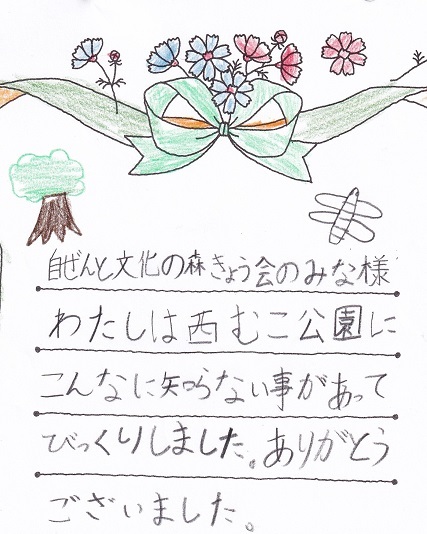 自ぜんと文化の森きょう会のみな様
わたしは西むこ公園に
こんなに知らない事があって
びっくりしました。ありがとう
ございました。